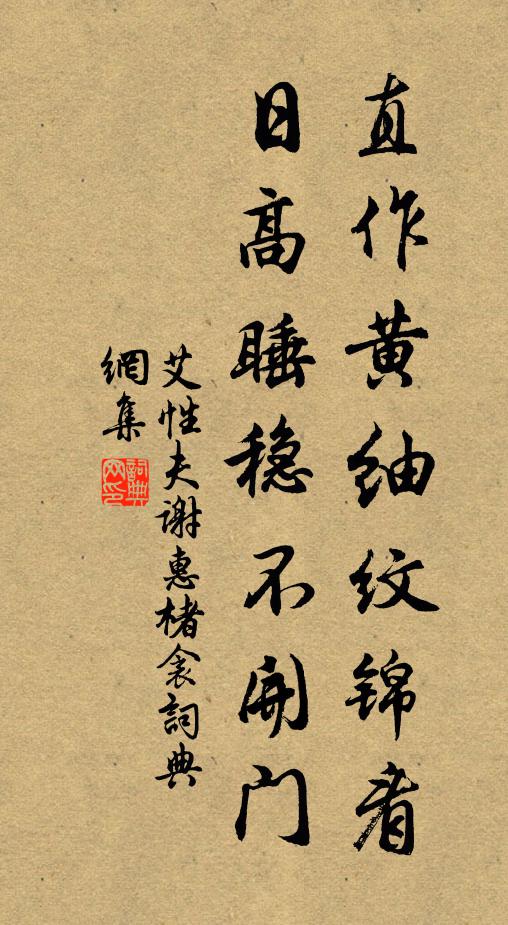 直作黄紬紋锦看
日高睡稳不開门
艾性夫谢惠楮衾詞典
網集
詞典網印